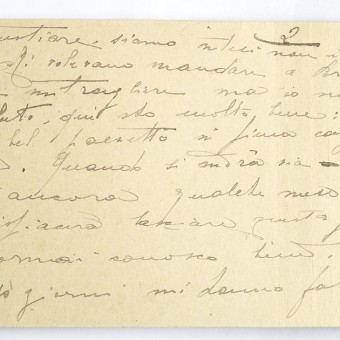 2
siamo intesi non i
Mi volevano mandare a Br
mitragliere ma io n
luto, qui sto molto bene:
bel paesetto in fina
Quando si andrà via
ancora qualche mese
spiacerà lasciare questo
ormai conosco bene.
giorni mi danno fa